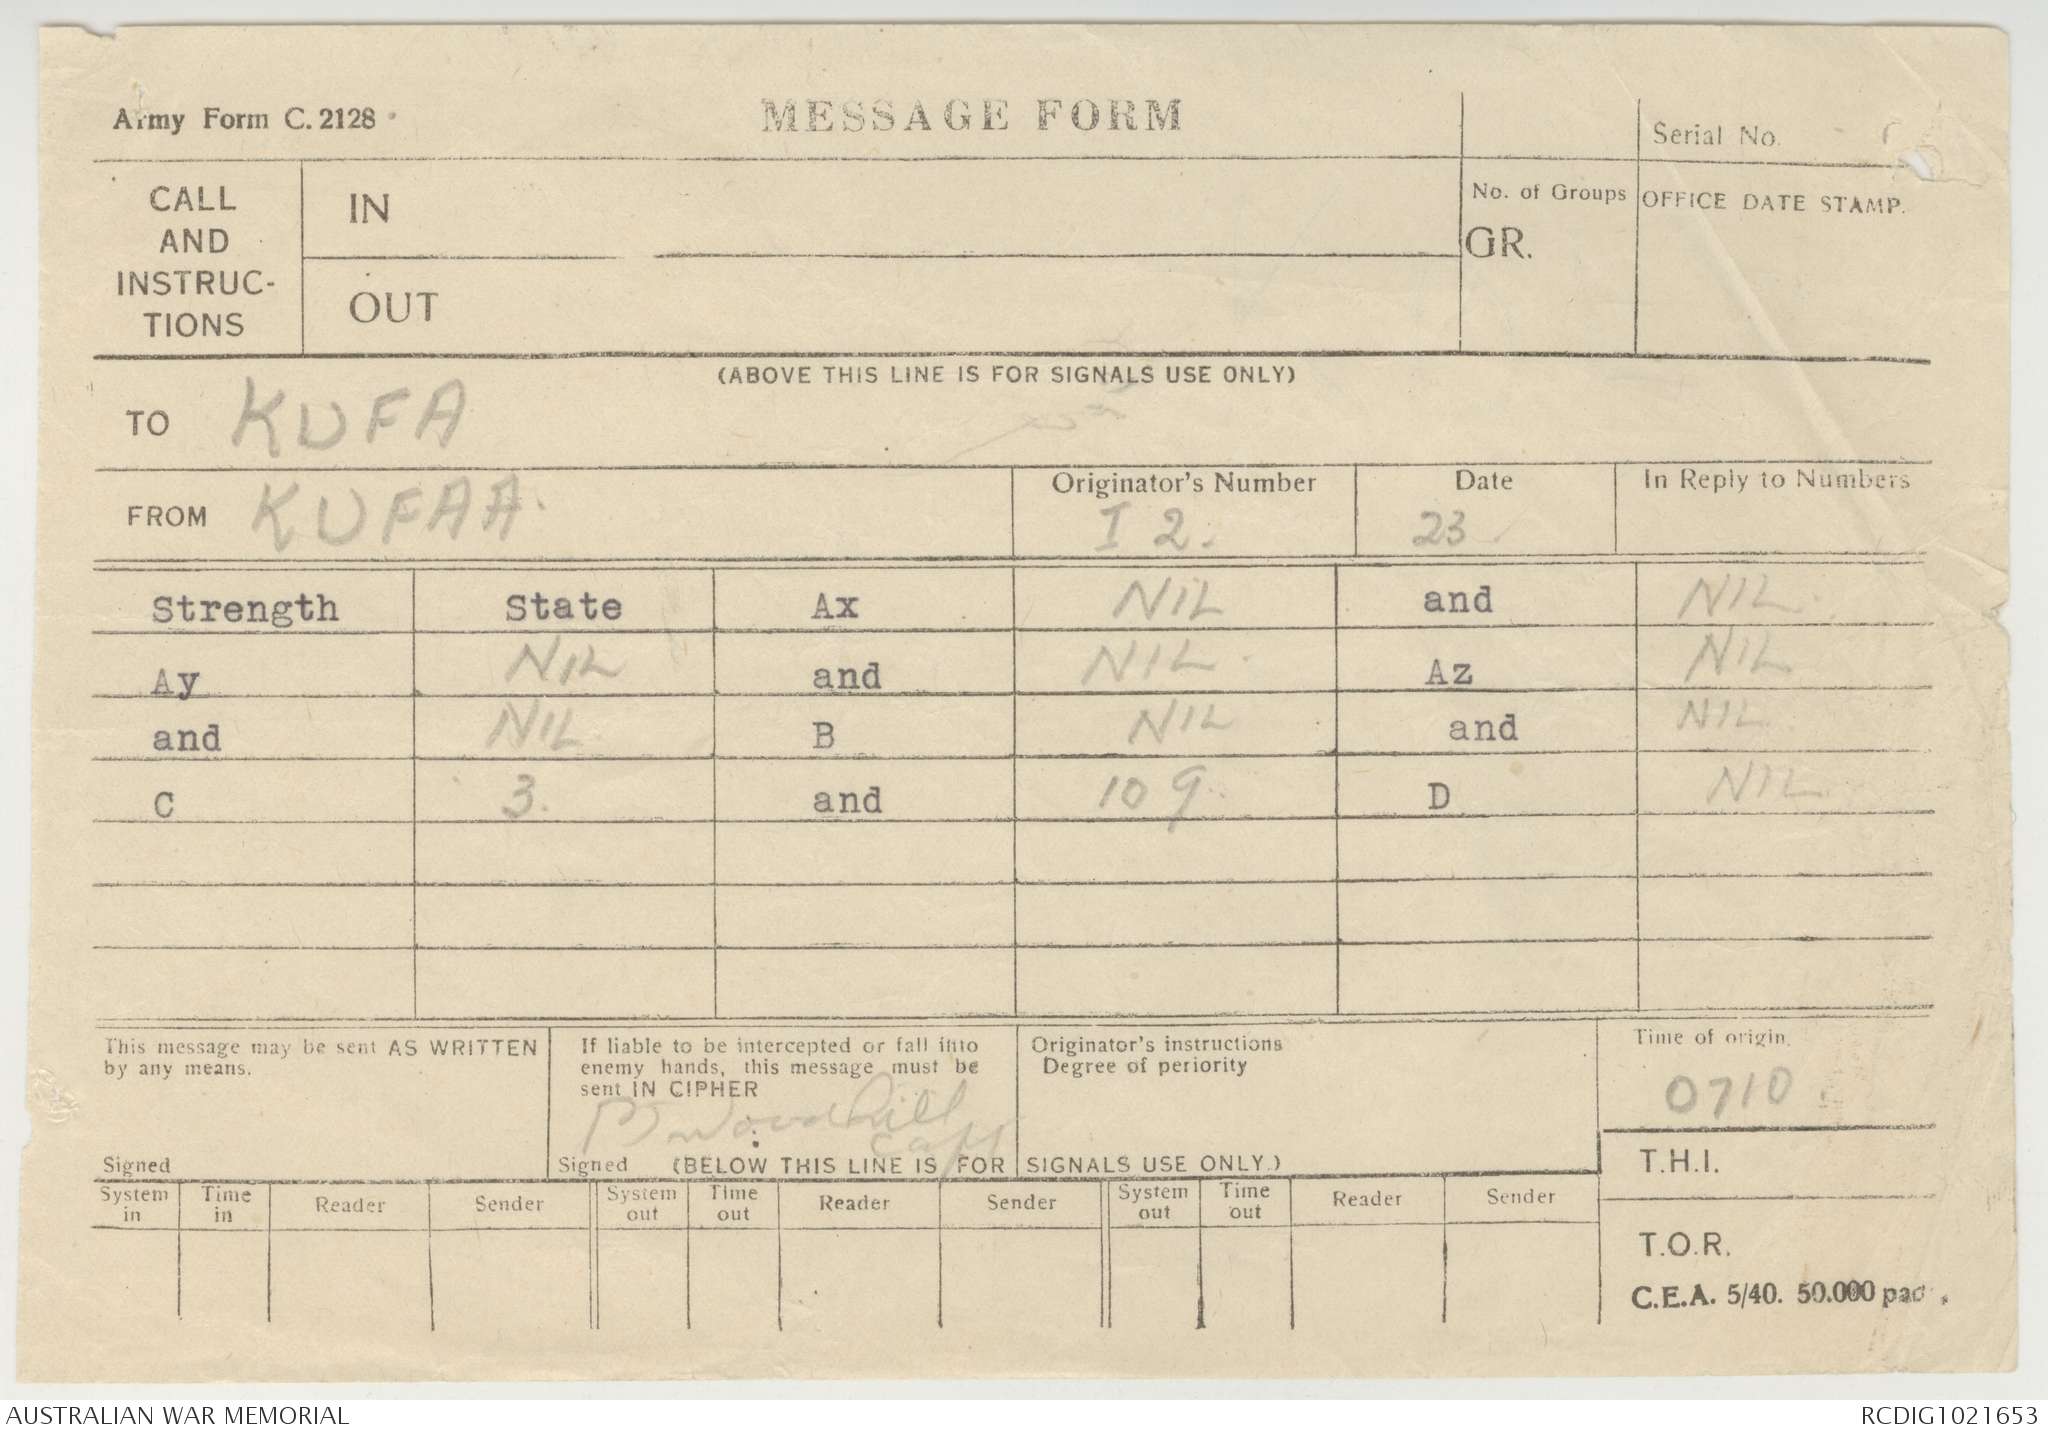 Army Form C. 2128
MESSAGE FORM
Serial No.
CALL AND INSTRUC-TIONS
IN
OUT
No. of Groups
GR.
OFFICE DATE STAMP.
(ABOVE THIS LINE IS FOR SIGNALS USE ONLY)
TO KUFA
FROM KUFAA.
Originator's Number
I 2.
Date
23.
In Reply to Numbers
Strength State Ax NIL and NIL.
Ay NIL and NIL. Az NIL
and NIL B NIL and NIL
C 3. and 109. D NIL
This message may be sent AS WRITTEN
by any means.
Signed
If liable to be intercepted or fall into
enemy hands, this message must be
sent IN CIPHER
Woodhill
Capt
Signed
Originator's instructions
Degree of periority
Time of origin.
0710.
(BELOW THIS LINE IS FOR SIGNALS USE ONLY.)
T.H.I.
System in Time in Reader Sender System out Time out Reader Sender System out Time out Reader Sender
T.O.R.
C.E.A. 5/40. 50.000
AUSTRALIAN WAR MEMORIAL
RCDIG1021653